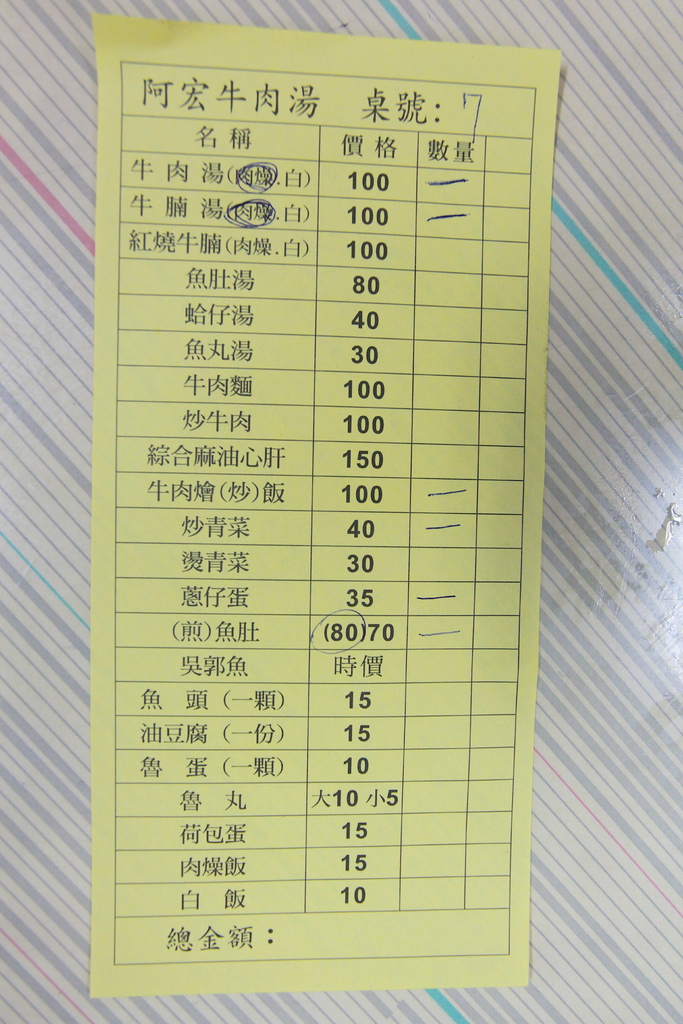 阿宏牛肉湯 桌號: 7
名稱 價格 數量
牛肉湯(肉燥.白) 100 一
牛腩湯(肉燥.白) 100 一
紅燒牛腩(肉燥.白) 100
魚肚湯 80
蛤仔湯 40
魚丸湯 30
牛肉麵 100
炒牛肉 100
綜合麻油心肝 150
牛肉燴(炒)飯 100 一
炒青菜 40 一
燙青菜 30
蔥仔蛋 35 一
(煎)魚肚 (80)70 一
吳郭魚 時價
魚 頭 (一顆) 15
油豆腐 (一份) 15
魯 蛋 (一顆) 10
魯 丸 大10 小5
荷包蛋 15
肉燥飯 15
白 飯 10
總金額：